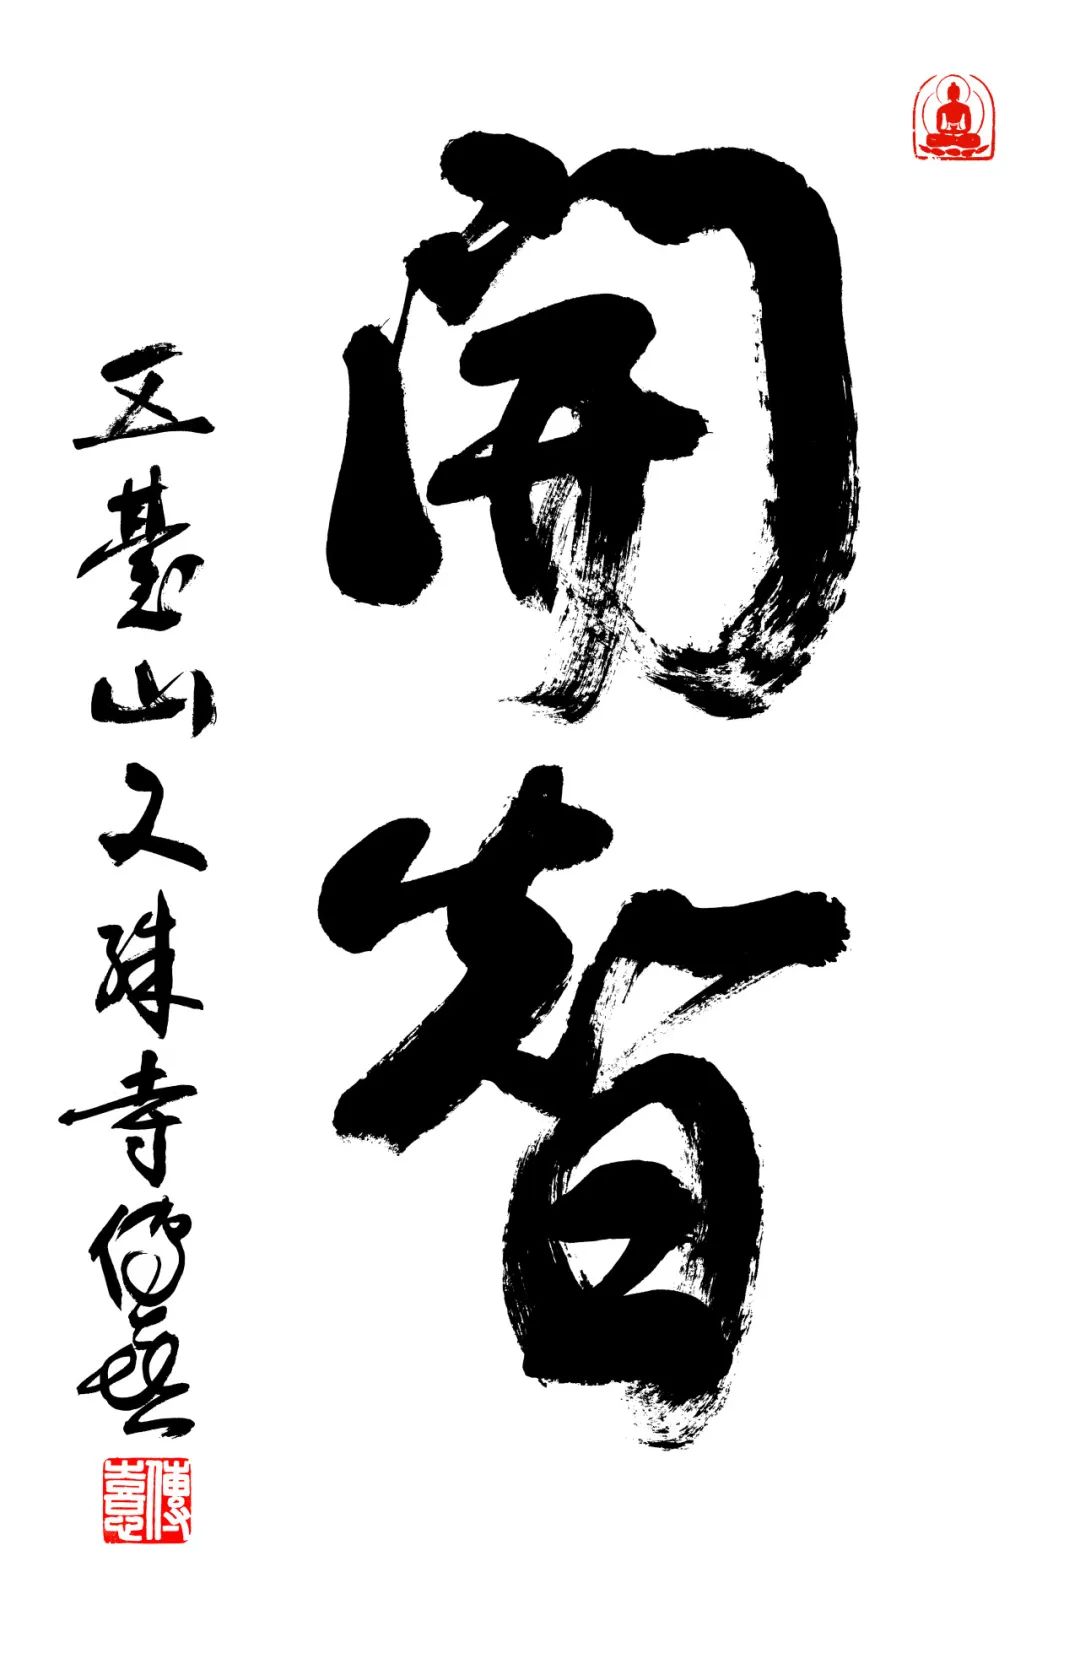 開智
五臺山文殊寺傳喜
傳喜